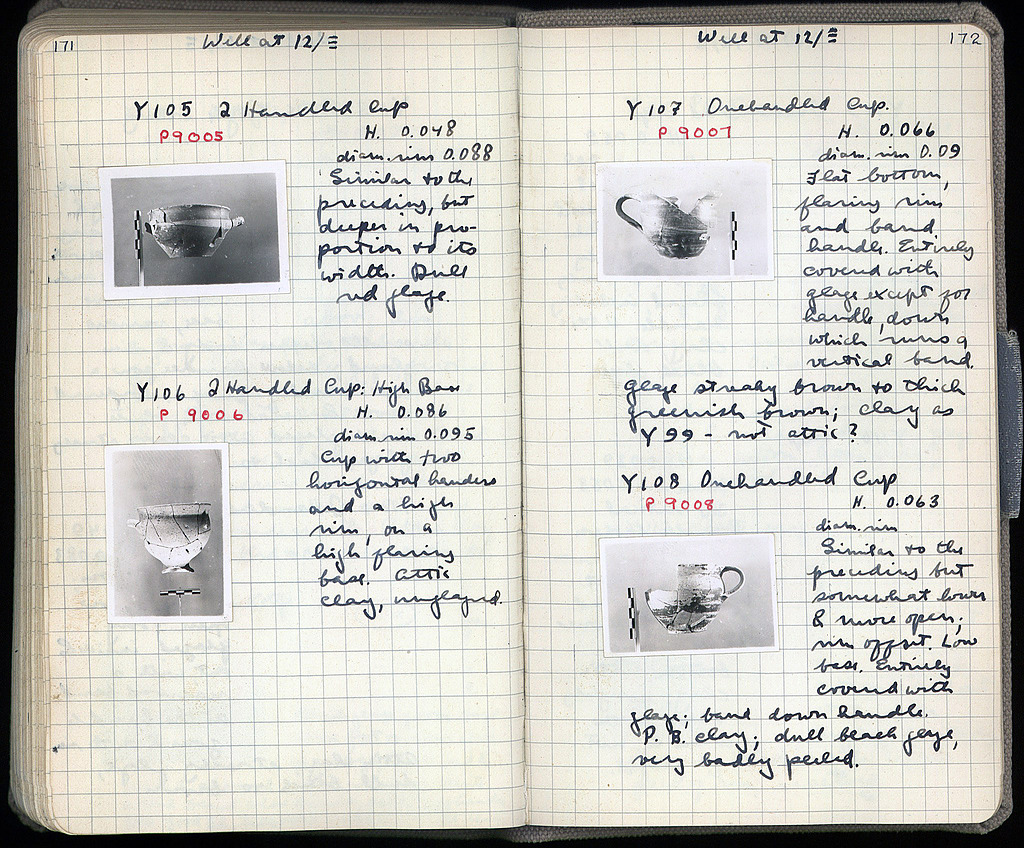 171
Well at 12/Ξ
Y105 2 Handled Cup
P9005
H. 0.048
diam. rim 0.088
Similar to the
preceding, but
deeper in pro-
portion to its
width. Dull
red glaze.
Y106 2 Handled Cup: High Base
P 9006
H. 0.086
diam. rim 0.095
Cup with two
horizontal handles
and a high
rim, on a
high flaring
base. Attic
clay, unglazed.
Well at 12/Ξ
172
Y107 Onehandled Cup.
P 9007
H. 0.066
diam. rim 0.09
Flat bottom,
flaring rim
and band
handle. Entirely
covered with
glaze except for
handle, down
which runs a
vertical band.
Glaze streaky brown to thick
greenish brown; clay as
Y99 - not attic?
Y108 Onehandled Cup
P 9008
H. 0.063
diam. rim
Similar to the
preceding but
somewhat lower
& more open;
rim offset. Low
base. Entirely
covered with
glaze; band down handle.
P. B. clay; dull black glaze,
very badly peeled.